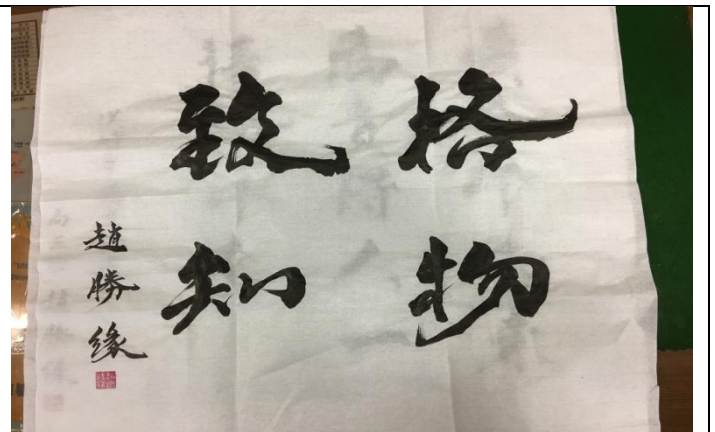 格物
致知
趙勝緣